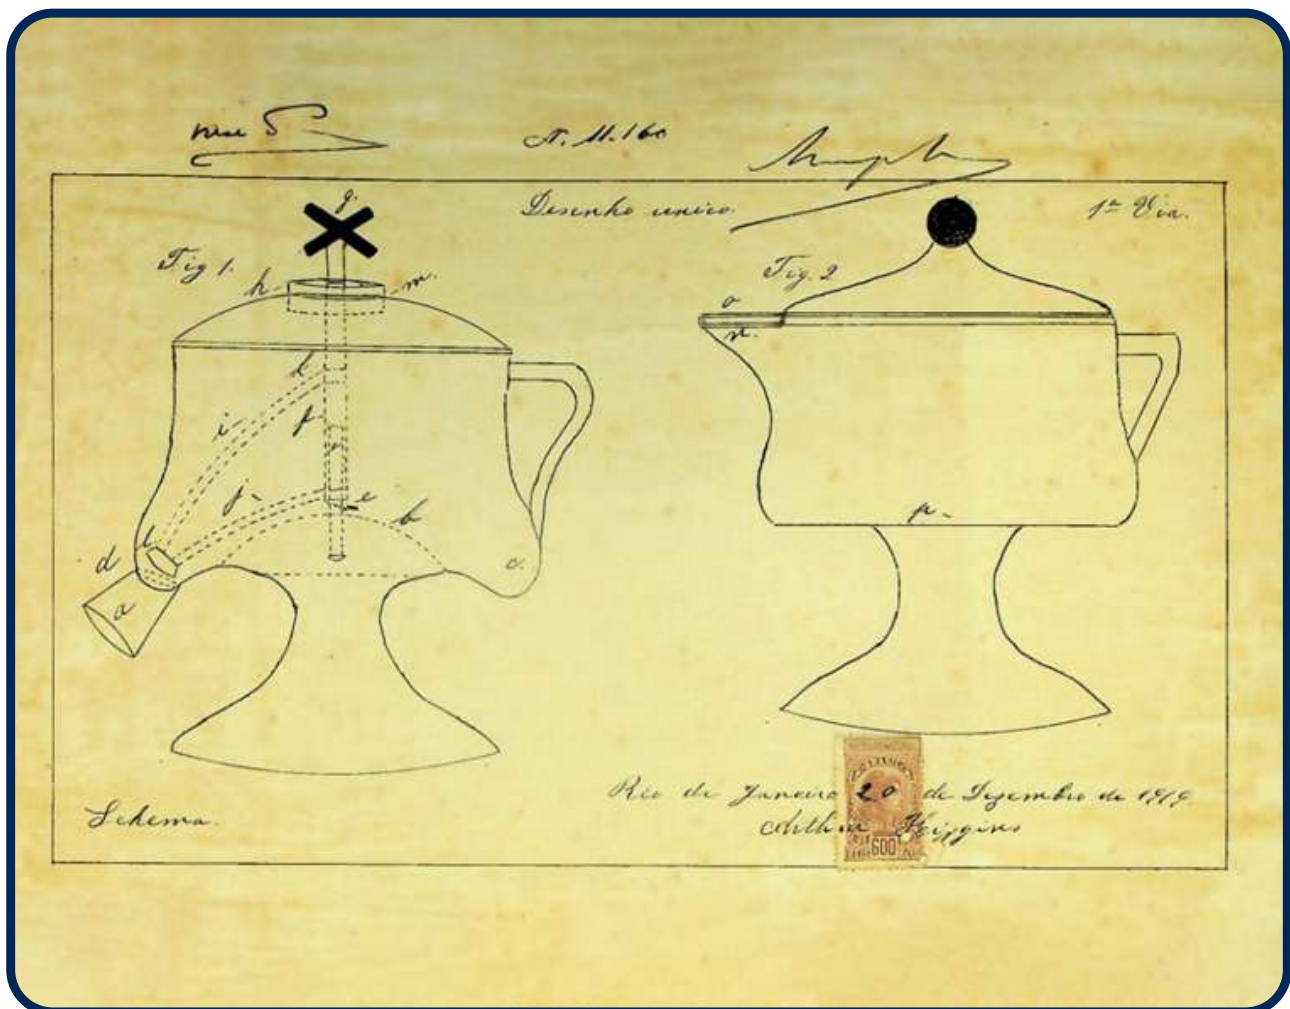 N. 11.160
Desenho unico.
1ª Via.
Fig 1.
g.
h
m.
k
i
f
j
e
b
l
d
a
c.
Fig. 2
o
n.
p
Schema.
Rio de Janeiro 20 de Dezembro de 1919
Arthur Higgins
600